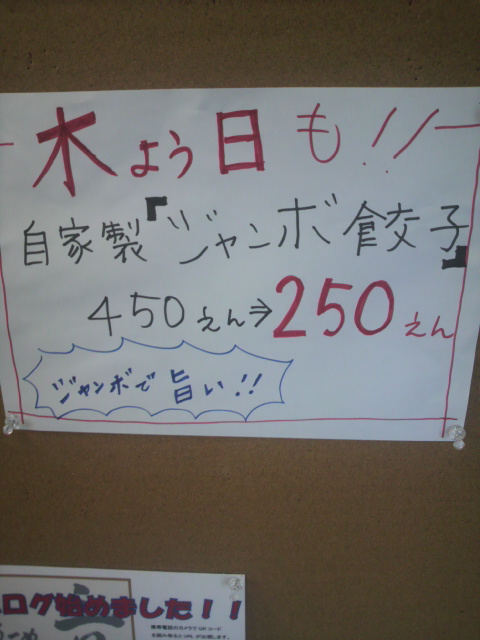 木よう日も!!
自家製『ジャンボ餃子』
450えん⇒250えん
ジャンボで旨い!!
ログ始めました!!